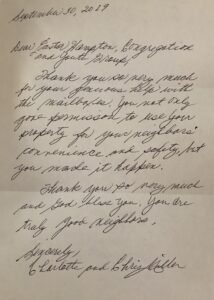 September 30, 2019
Dear Pastor Hampton, Congregation
and Youth Group,
Thank you so very much
for your generous help with
the mailboxes. You not only
gave permission to use your
property for your neighbors'
convenience and safety, but
you made it happen.
Thank you so very much
and God bless you. You are
truly good neighbors.
Sincerely,
Charlotte and Chris